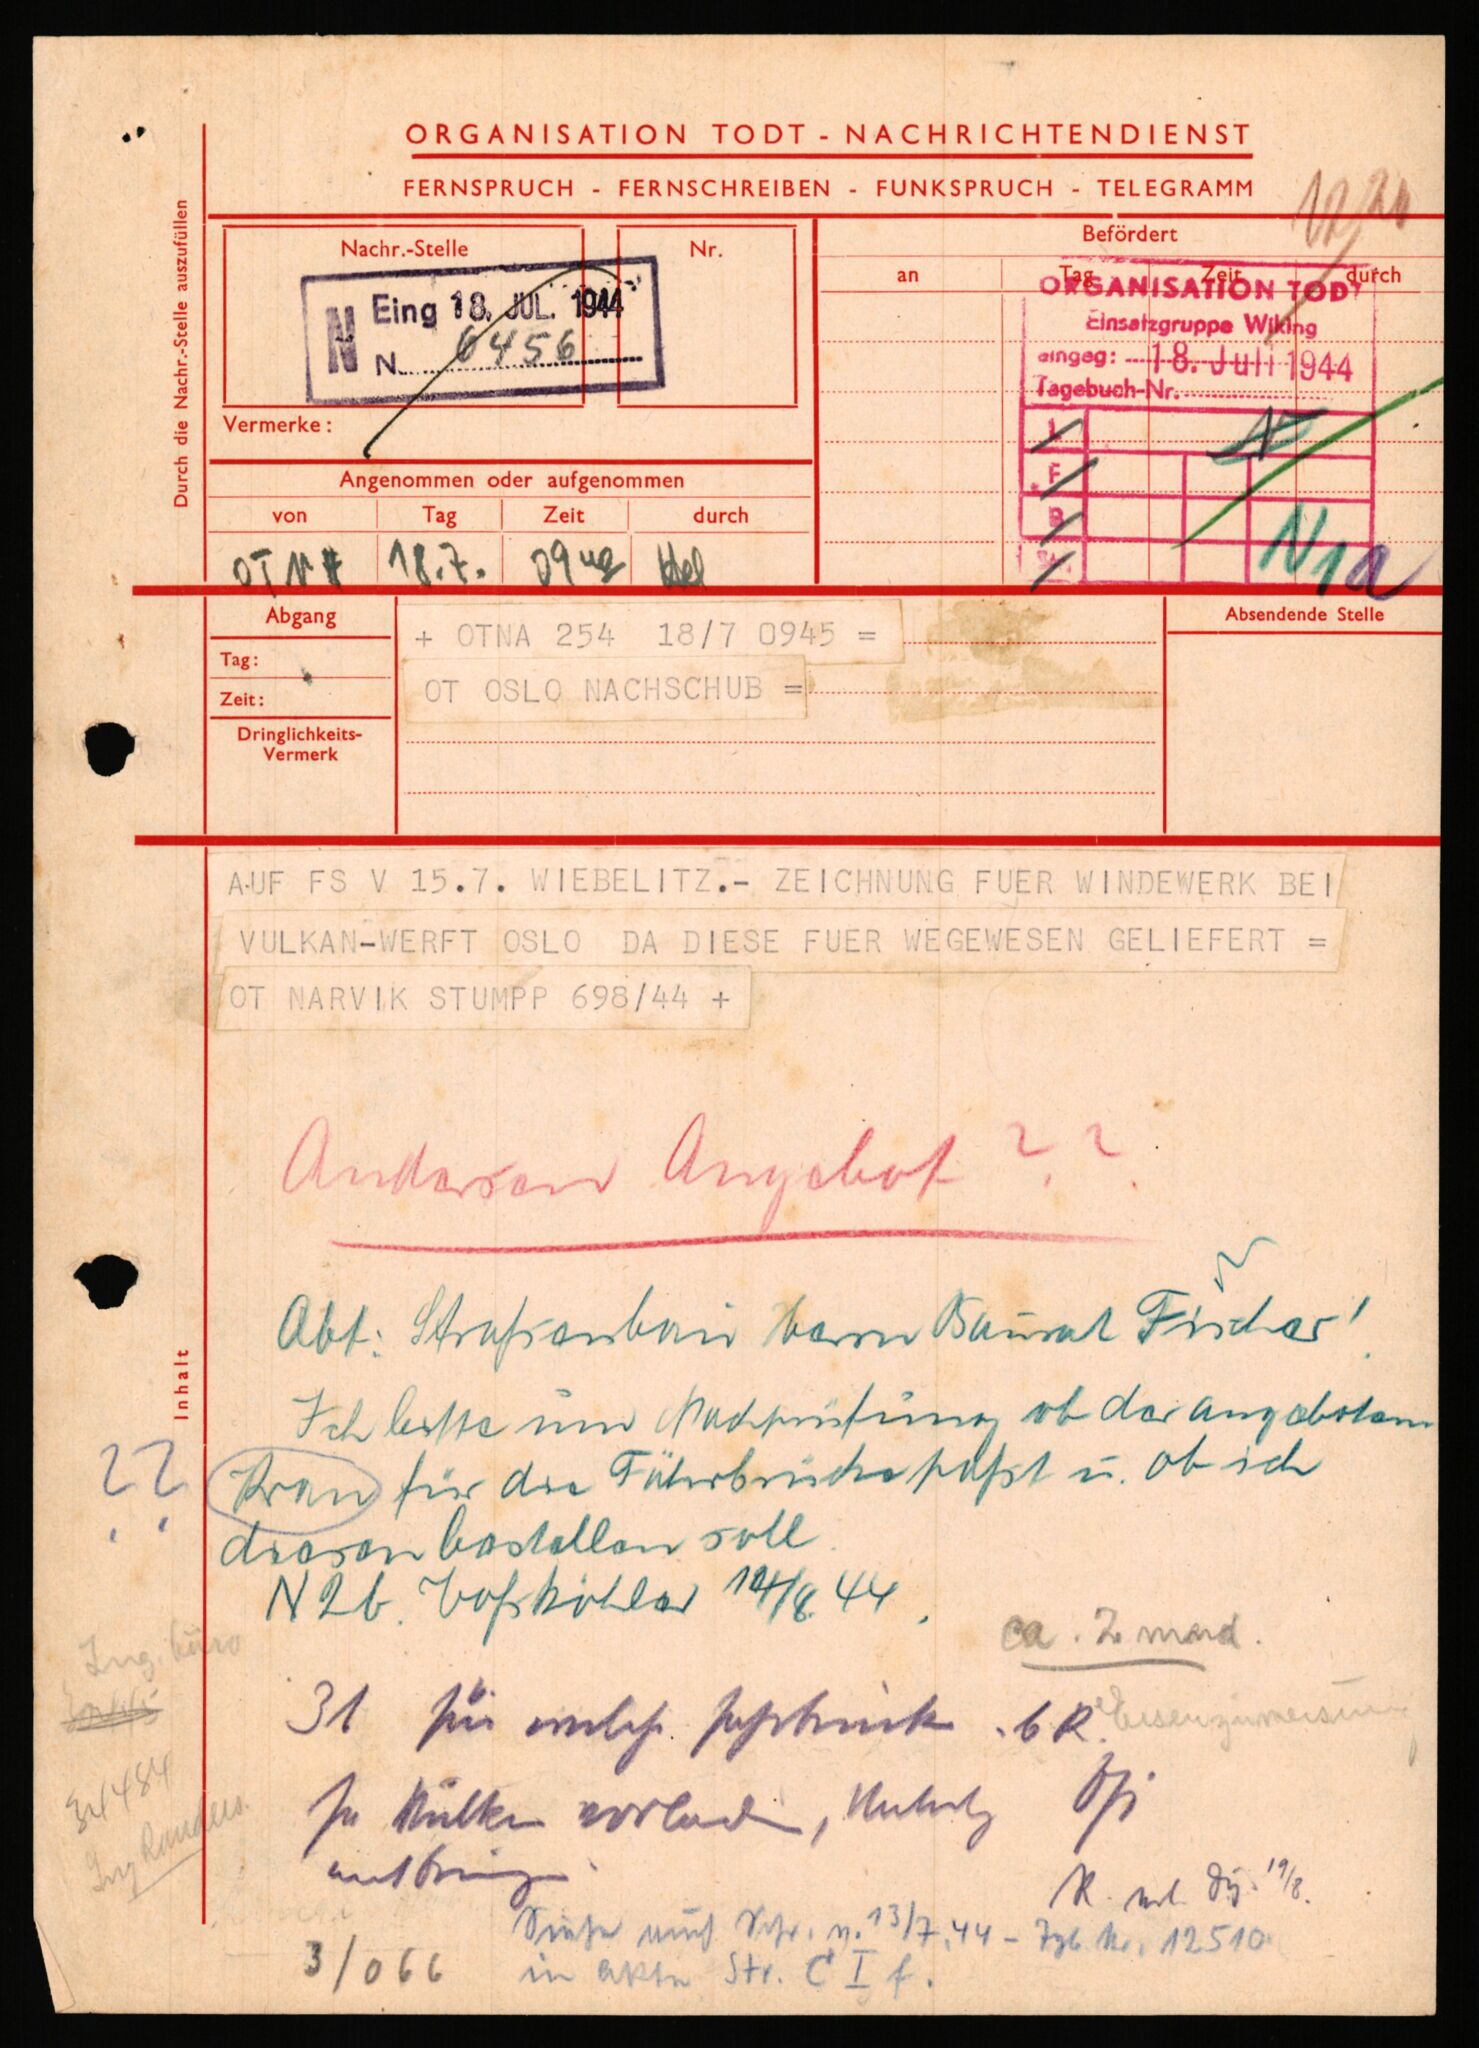 ORGANISATION TODT - NACHRICHTENDIENST
FERNSPRUCH - FERNSCHREIBEN - FUNKSPRUCH - TELEGRAMM
Durch die Nachr.-Stelle auszufüllen
Nachr.-Stelle
Nr.
N Eing 18. JUL. 1944
N. 6456
Vermerke:
Angenommen oder aufgenommen
von Tag Zeit durch
18.7.
Befördert
an Tag Zeit durch
ORGANISATION TODT
Einsatzgruppe Wiking
eingeg: 18. Juli 1944
Tagebuch-Nr.
F
B
N1a
Abgang
Tag:
Zeit:
Dringlichkeits-
Vermerk
Absendende Stelle
+ OTNA 254 18/7 0945 =
OT OSLO NACHSCHUB =
AUF FS V 15.7. WIEBELITZ.- ZEICHNUNG FUER WINDEWERK BEI
VULKAN-WERFT OSLO DA DIESE FUER WEGEWESEN GELIEFERT =
OT NARVIK STUMPP 698/44 +
Inhalt
Andersen Angebot ??
Abt: Straßenbau Herrn Baurat Fischer!
Ich bitte um Nachprüfung ob der angebotene
?? Kran für die Fährbrücke paßt u. ob ich
diesen bestellen soll.
N2b. Voßköhler 14/8.44.
ca. 2
Ing. büro
3t für
Eisenzuweisung
34484
Ing Randers.
19/8.
Siehe auch Schr. v. 13/7.44 - Tgb. Nr. 12510
3/066 in Akte Str. C I f.